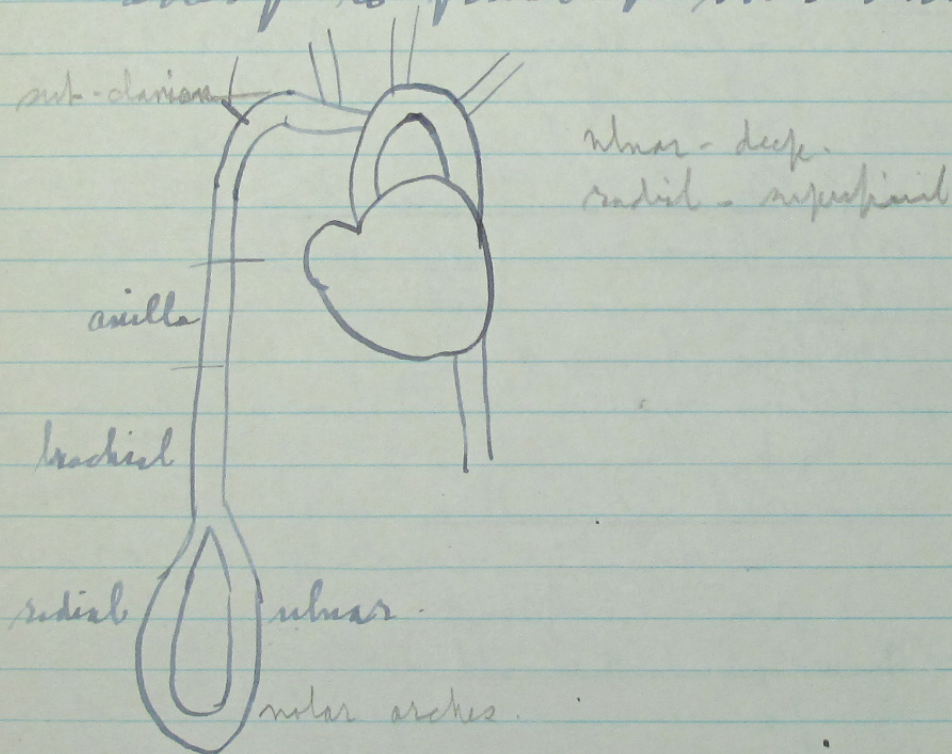 sub-clavian
ulnar - deep.
radial - superficial
axilla
brachial
radial ulnar.
volar arches.